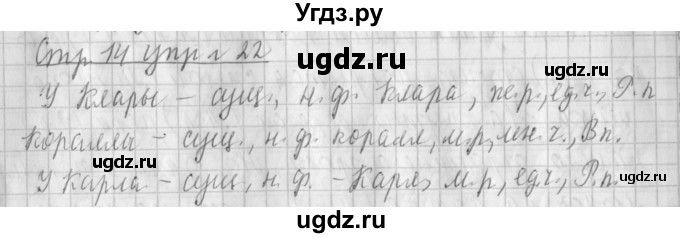 Угдз.ру
Стр 14 упр 22
ugdz.ru ugdz.ru
У Клары – сущ., н.ф. Клара, ж.р., ед.ч., Р.п
ugdz.ru
кораллы – сущ., н.ф. коралл, м.р, мн.ч., Вп.
ugdz.ru ugdz.ru
У Карла – сущ, н.ф. – Карл, м.р, ед.ч., Р.п.
ugdz.ru
ugdz.ru